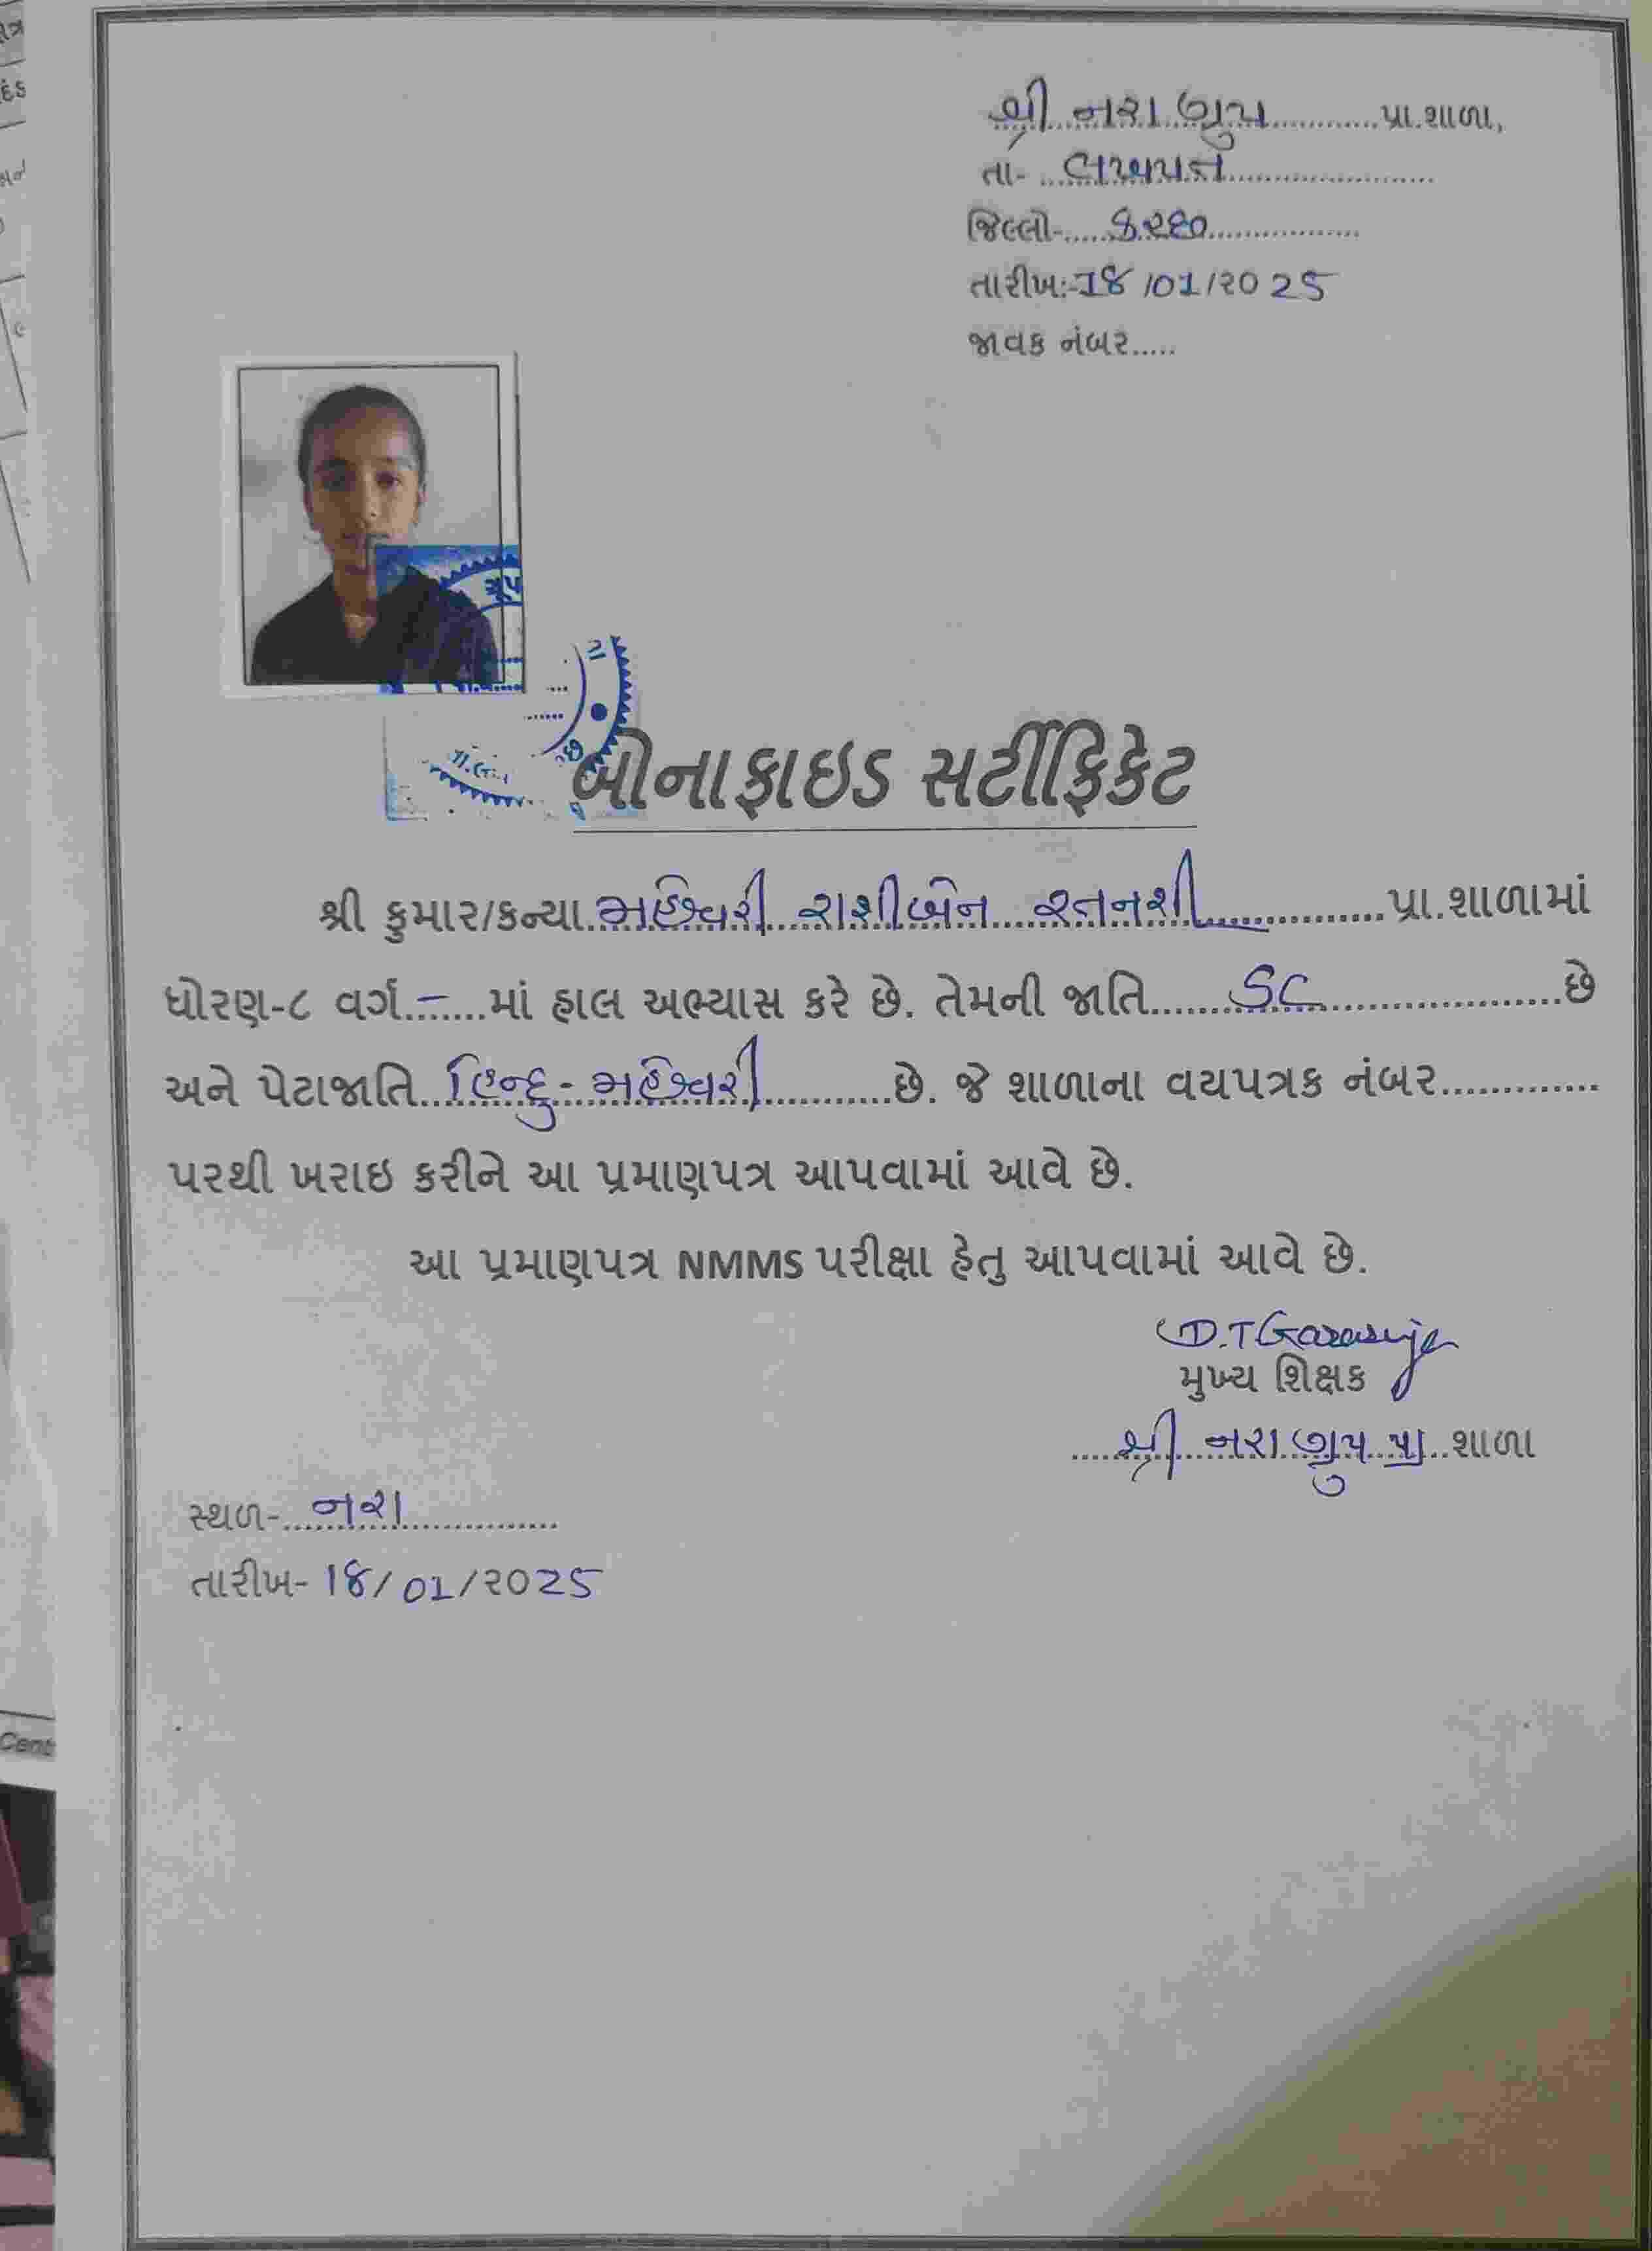 શ્રી નરા ગ્રુપ પ્રા.શાળા,
તા- લખપત
જિલ્લો- કચ્છ
તારીખ:-18/01/૨૦25
જાવક નંબર.....
બોનાફાઇડ સર્ટીફિકેટ
શ્રી કુમાર/કન્યા મહેશ્વરી રાશીબેન રતનશી પ્રા.શાળામાં
ધોરણ-૮ વર્ગ - માં હાલ અભ્યાસ કરે છે. તેમની જાતિ SC છે
અને પેટાજાતિ હિન્દુ - મહેશ્વરી છે. જે શાળાના વયપત્રક નંબર..............
પરથી ખરાઇ કરીને આ પ્રમાણપત્ર આપવામાં આવે છે.
આ પ્રમાણપત્ર NMMS પરીક્ષા હેતુ આપવામાં આવે છે.
D.T Garasiya
મુખ્ય શિક્ષક
શ્રી નરા ગ્રુપ પ્રા શાળા
સ્થળ- નરા
તારીખ- 18/01/૨૦25